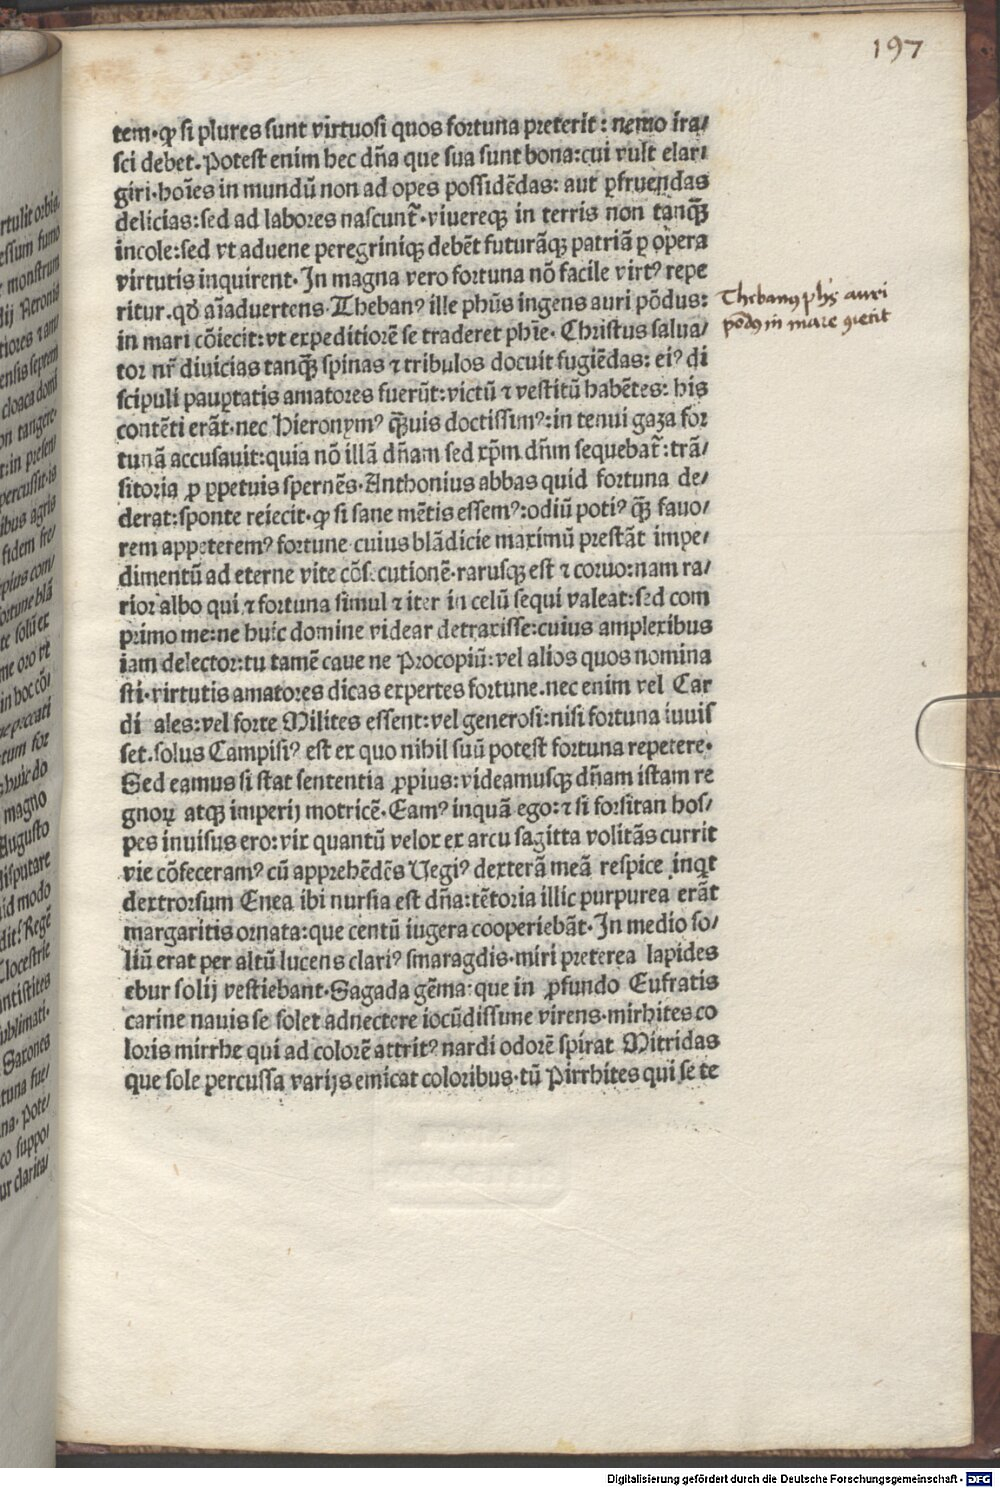 197
tem·ꝙ si plures sunt virtuosi quos fortuna preterit : nemo ira/
sci debet. Potest enim hec dña que sua sunt bona: cui vult elar
giri·hoĩes in mundũ non ad opes possidẽdas: aut ꝓfruendas
delicias: sed ad labores nascunt̃·viuereqꝫ in terris non tanqꝫ̃
incole: sed vt aduene peregriniqꝫ debẽt futurãqꝫ patriã ꝑ opera
virtutis inquirent·In magna vero fortuna nõ facile virtꝰ repe
ritur. qđ aĩaduertens·Thebanꝰ ille phũs ingens auri põdus:
in mari cõiecit: vt expeditiorẽ se traderet phĩe· Christus salua/
tor nr̃ diuicias tanqꝫ̃ spinas ⁊ tribulos docuit fugiẽdas: eiꝰ di
scipuli pauꝑtatis amatores fuerũt: victũ ⁊ vestitũ habẽtes: his
contẽti erãt·nec Hieronymꝰ qꝫ̃uis doctissimꝰ: in tenui gaza for
tunã accusauit: quia nõ illã dñam sed xp̃m dñm sequebat̃: trã/
sitoria ꝓ ꝑpetuis spernẽs·Anthonius abbas quid fortuna de/
derat: sponte reiecit·ꝙ si sane mẽtis essemꝰ: odiũ potiꝰ qꝫ̃ fauo/
rem appeteremꝰ fortune cuius blãdicie maximũ prestãt impe/
dimentũ ad eterne vite cõsecutionẽ·rarusqꝫ est ⁊ coruo: nam ra/
rior albo qui ⁊ fortuna simul ⁊ iter in celũ sequi valeat: sed com
primo me: ne huic domine videar detraxisse: cuius amplexibus
iam delector: tu tamẽ caue ne Procopiũ: vel alios quos nomina
sti·virtutis amatores dicas expertes fortune. nec enim vel Car
di ales: vel forte Milites essent: vel generosi: nisi fortuna iuuis
set. solus Campisiꝰ est ex quo nihil suũ potest fortuna repetere·
Sed eamus si stat sententia ꝓpius: videamusqꝫ dñam istam re
gnoꝝ atqꝫ imperij motricẽ·Eamꝰ inquã ego: ⁊ si forsitan hos/
pes inuisus ero: vix quantũ velox ex arcu sagitta volitãs currit
vie cõfeceramꝰ cũ apprehẽdẽs Uegiꝰ dexterã meã respice inqt
dextrorsum Enea ibi nursia est dña: tẽtoria illic purpurea erãt
margaritis ornata: que centũ iugera cooperiebãt·In medio so/
liũ erat per altũ lucens clariꝰ smaragdis·miri preterea lapides
ebur solij vestiebant·Sagada gẽma: que in ꝓfundo Eufratis
carine nauis se solet adnectere iocũdissime virens·mirhites co
loris mirrhe qui ad colorẽ attritꝰ nardi odorẽ spirat Mitridas
que sole percussa varijs emicat coloribus·tũ Pirrhites qui se te
Thebanꝰ phs auri
põdꝰ in mare ꝯiecit
Digitalisierung gefördert durch die Deutsche Forschungsgemeinschaft - DFG